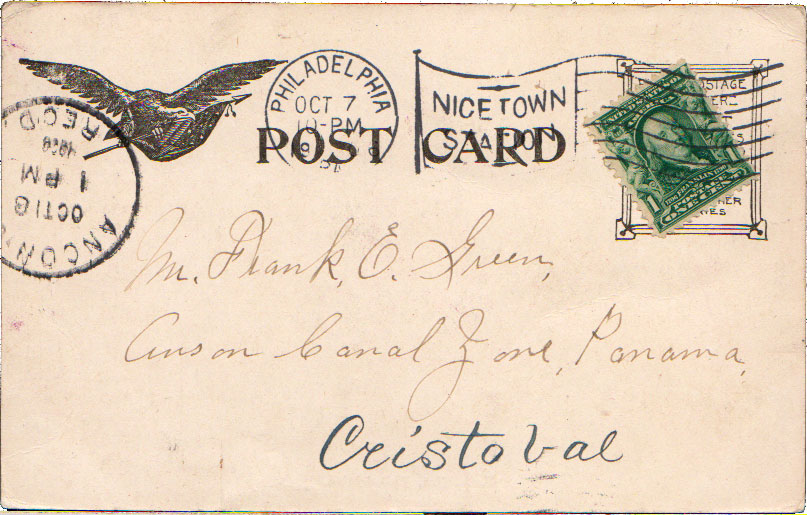 PHILADELPHIA
OCT 7
10-PM
NICETOWN
STATION
POST CARD
ANCON
OCT 18
1 PM
REC'D
POSTAGE
HERE
ONE CENT
1
Mr. Frank E. Green,
Anson Canal Zone, Panama,
Cristobal